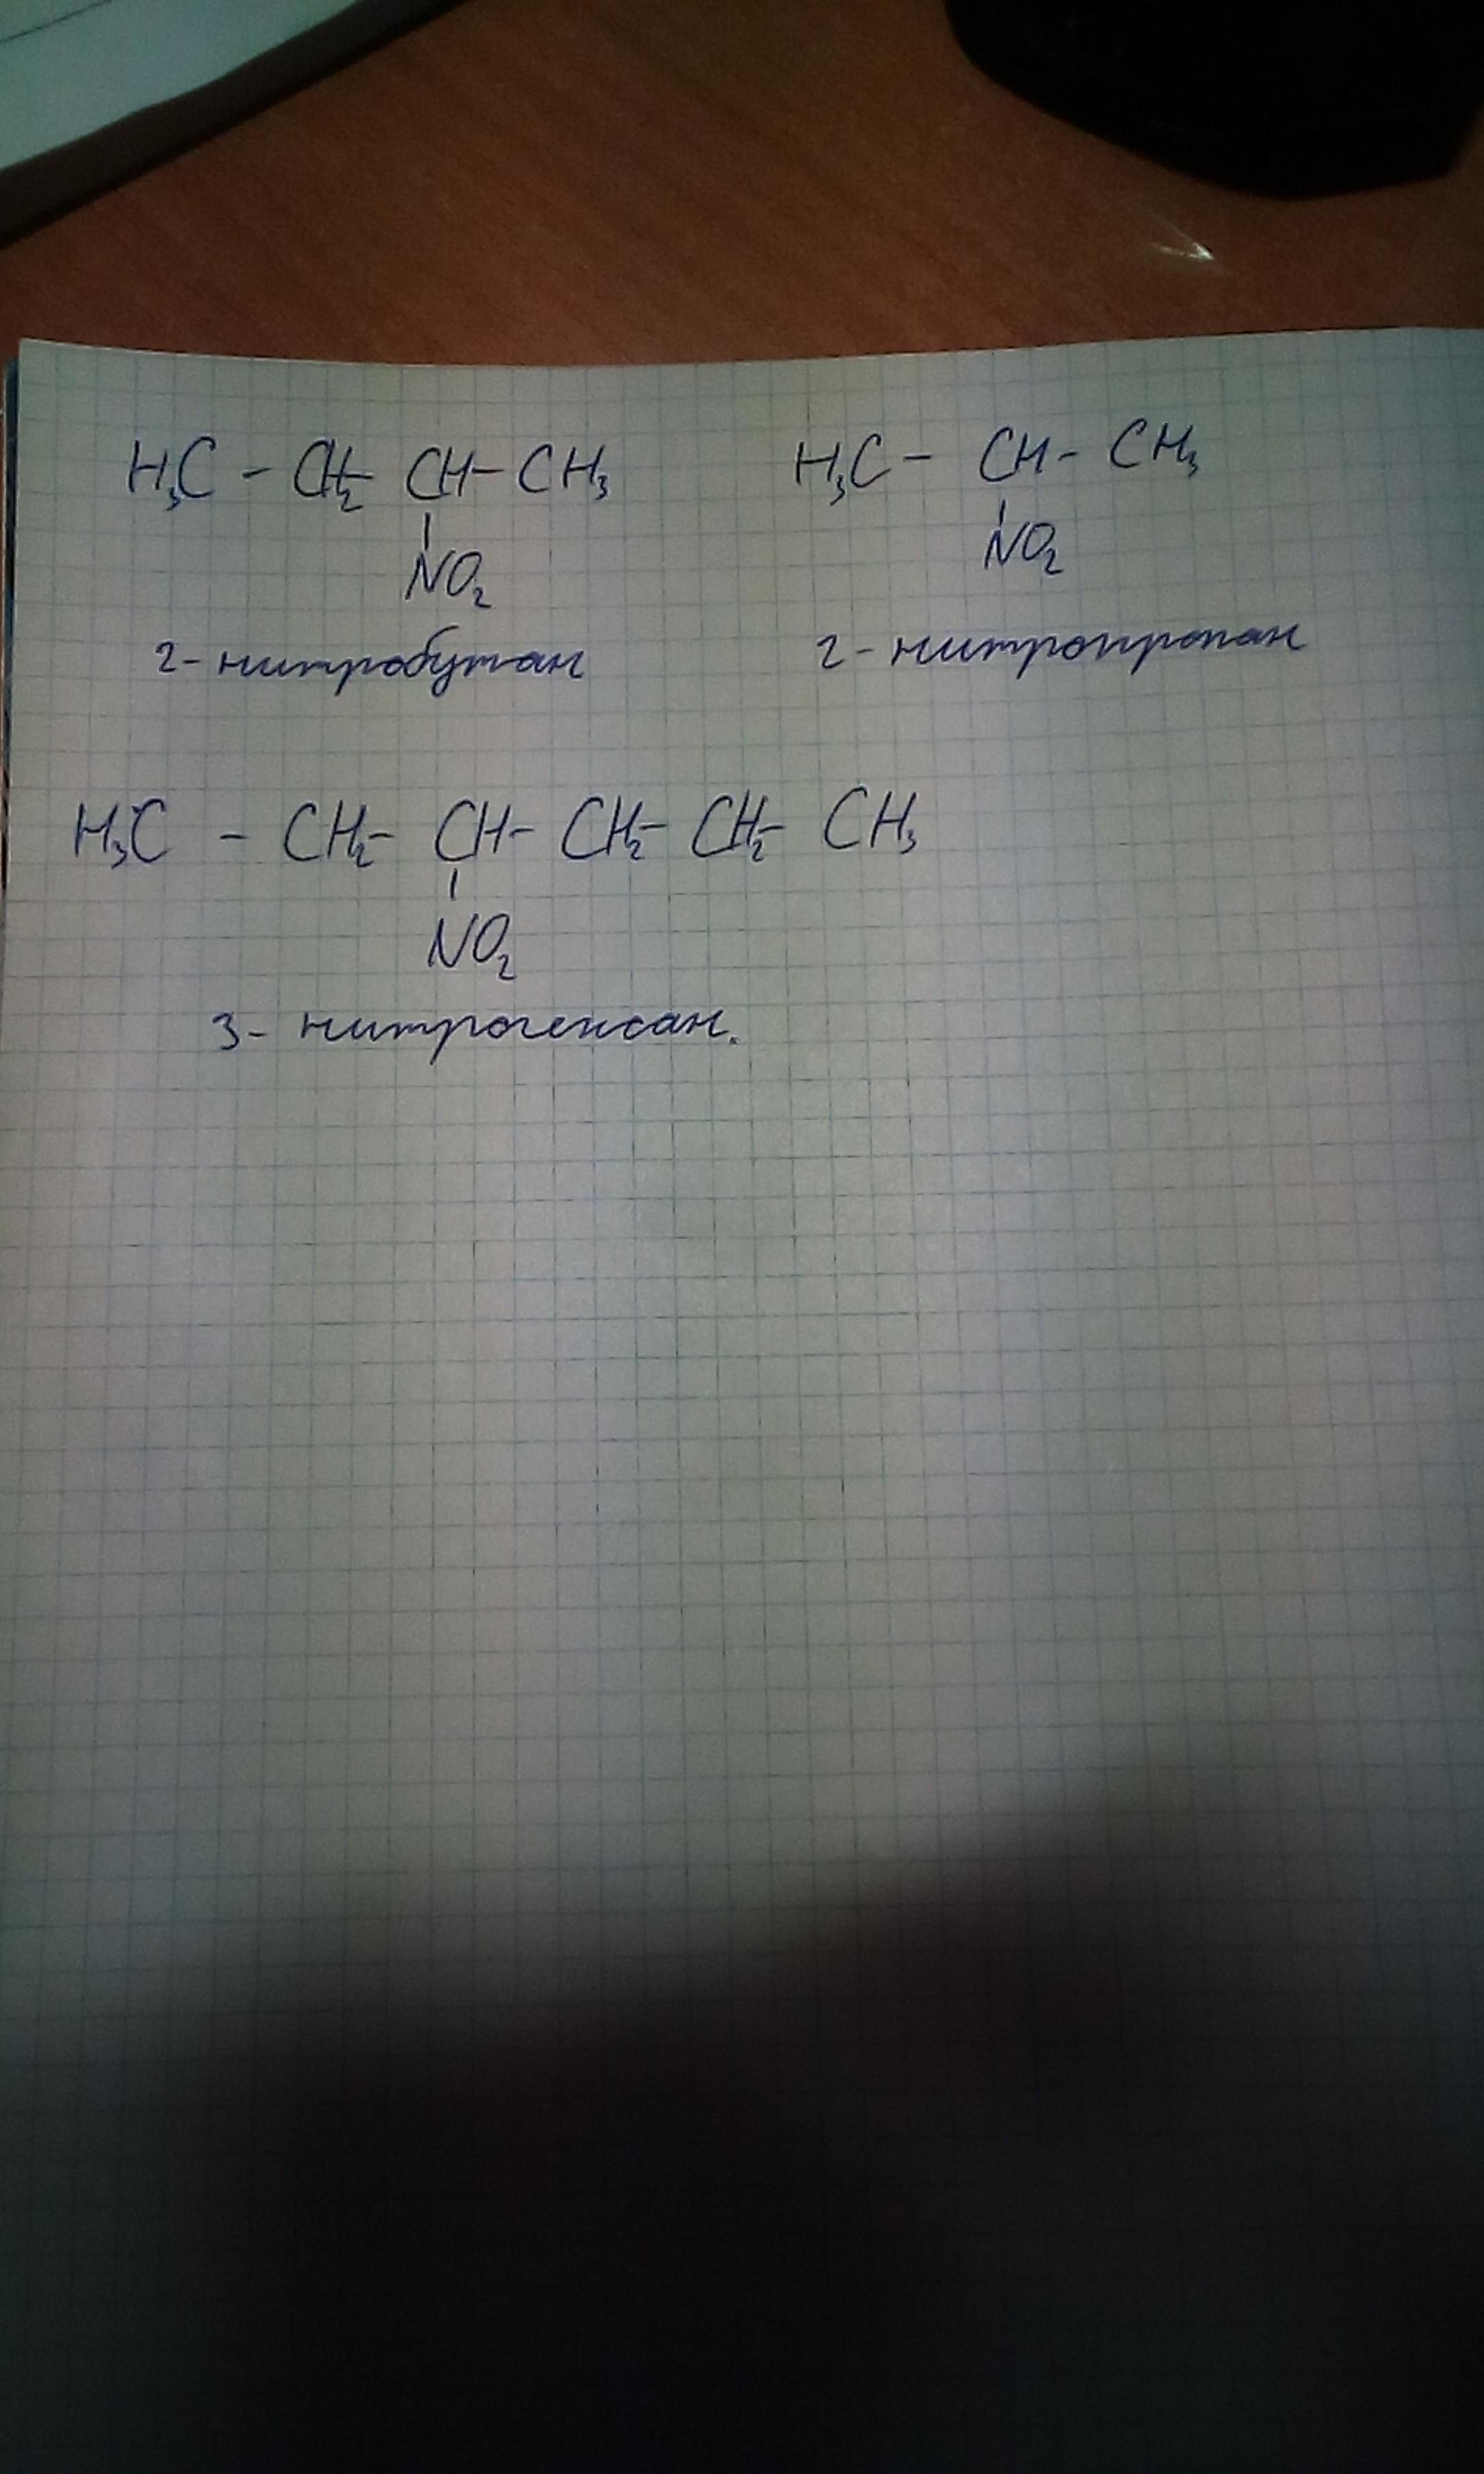 H₃C – CH₂– CH– CH₃
NO₂
2- нитробутан
H₃C – CH – CH₃
NO₂
2- нитропропан
H₃C – CH₂– CH– CH₂– CH₂– CH₃
NO₂
3- нитрогексан.